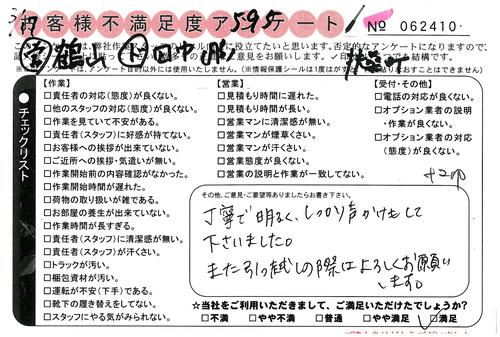 お客様不満足度アンケート
595
No 062410
㊂
【作業】
□責任者の対応(態度)が良くない。
□他のスタッフの対応(態度)が良くない。
□作業を見ていて不安がある。
□責任者(スタッフ)に好感が持てない。
□お客様への挨拶が出来ていない。
□ご近所への挨拶・気遣いが無い。
□作業開始前の内容確認がなかった。
□作業開始時間が遅れた。
□荷物の取り扱いが雑である。
□お部屋の養生が出来ていない。
□作業時間が長すぎる。
□責任者(スタッフ)に清潔感が無い。
□責任者(スタッフ)が汗くさい。
□トラックが汚い。
□梱包資材が汚い。
□運転が不安(下手)である。
□靴下の履き替えをしてない。
□スタッフにやる気がみられない。
チェックリスト
【営業】
□見積もり時間に遅れた。
□見積もり時間が長い。
□営業マンに清潔感が無い。
□営業マンが煙草くさい。
□営業マンが汗くさい。
□営業態度が良くない。
□営業の説明と作業が一致してない。
【受付・その他】
□電話の対応が良くない。
□オプション業者の説明
・作業が良くない。
□オプション業者の対応
(態度)が良くない。
その他、ご意見・ご要望等ありましたらお書き下さい。
丁寧で明るく、しっかり声かけもして
下さいました。
また引っ越しの際はよろしくお願い
します。
☆当社をご利用いただきまして、ご満足いただけたでしょうか?
□不満 □やや不満 □普通 □やや満足 □満足